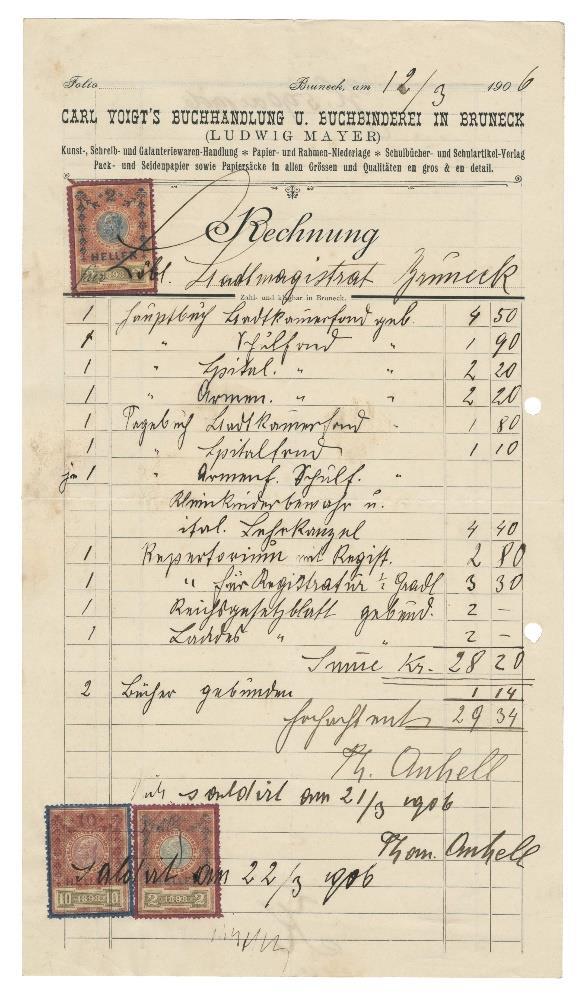 Folio Bruneck, am 12/3 1906
CARL VOIGT'S BUCHHANDLUNG U. BUCHBINDEREI IN BRUNECK
(LUDWIG MAYER)
Kunst-, Schreib- und Galanteriewaren-Handlung * Papier- und Rahmen-Niederlage * Schulbücher- und Schulartikel-Verlag
Pack- und Seidenpapier sowie Papiersäcke in allen Grössen und Qualitäten en gros & en detail.
2
HELLER
1898
Rechnung
löbl. Stadtmagistrat Bruneck
Zahl- und klagbar in Bruneck.
1 Hauptbuch Stadtkammerfond geb. 4 50
1 " Schulfond " 1 90
1 " Spital. " " 2 20
1 " Armen. " " 2 20
1 Tagebuch Stadtkammerfond " 1 80
1 " Spitalfond 1 10
je 1 " Armenf. Schulf. "
Kleinkinderbewahr u.
ital. Lehrkanzel 4 40
1 Repertorium mit Regist. 2 80
1 " für Registratur 3 30
1 Reichsgesetzblatt gebund. 2 –
1 Landes " " 2 –
Summe Kr. 28 20
2 Bücher gebunden 1 14
29 34
Th. Anhell
saldirt am 21/3 1906
Thom. Anhell
10 1898 10
2 1898 2
Saldirt am 22/3 1906